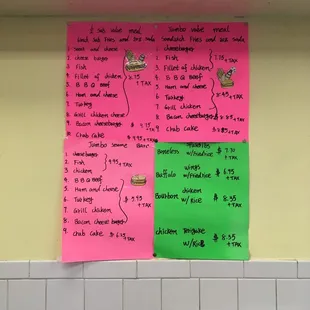 ½ sub value meal
each sub Fries and 202 soda
1 cheese burger
2 Fish
3 Fillet of chicken
4 B B Q Beef
5 Ham and cheese
7 Turkey
8 Grill chicken cheese
9 Bacon cheeseburger
Crab Cake $ 9.45 + TAX
Jumbo value meal
Sandwich Fries and 202 soda
1 cheeseburger
2 Fish
3 Fillet of chicken
4 B B Q Beef
5 Ham and cheese
6 Turkey
7 Grill chicken
8 Bacon cheeseburger
9 Crab Cake
Jumbo Same Bar
1 cheeseburger
2 Fish
3 chicken
4 B B Q Beef
5 Ham and cheese
6 Turkey
7 Grill chicken
8 Bacon cheese burger
9 Crab Cake $ 6.75 + TAX
Boneless
w/Fried rice $ 7.31 + TAX
Buffalo wings
w/Fried rice $ 6.95 + TAX
Bourbon chicken
w/Rice $ 8.35 + TAX
chicken
w/Rice $ 8.35 + TAX